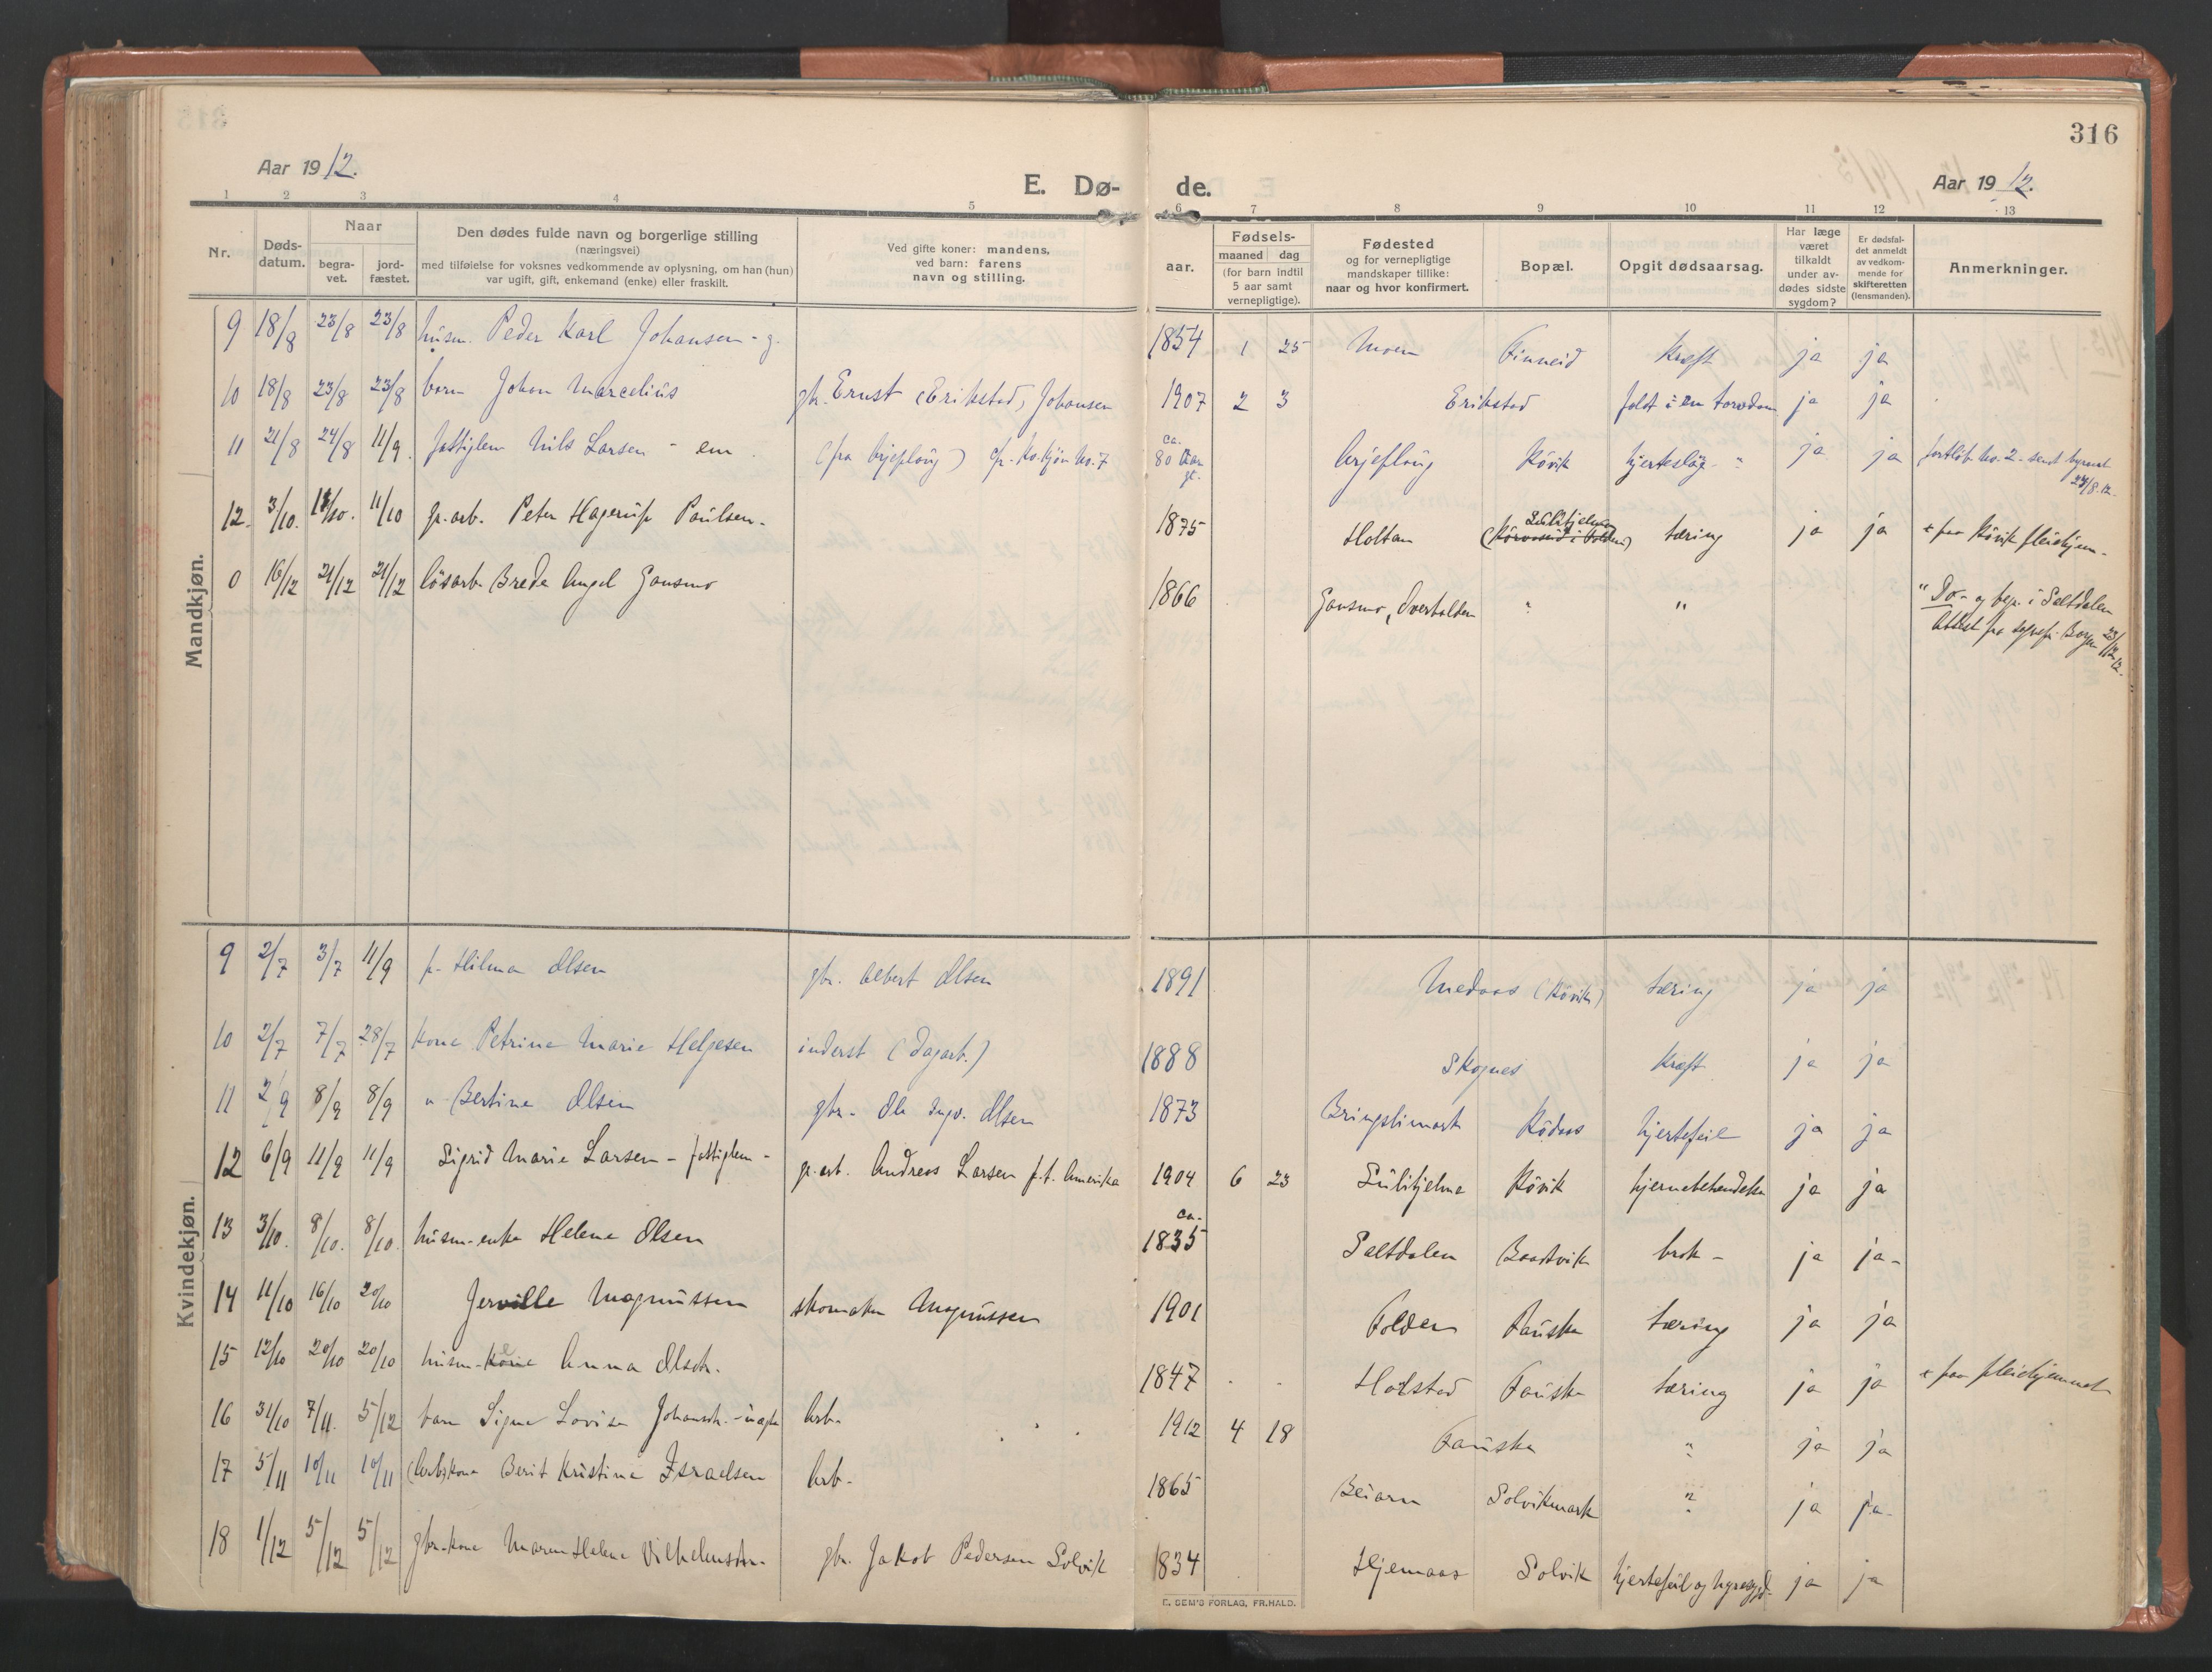 316
Aar 1912.
E. Dø-
de.
Aar 1912.
1 2 3 4 5 6 7 8 9 10 11 12 13
Nr.
Døds-
datum.
Naar
begra-
vet.
jord-
fæstet.
Den dødes fulde navn og borgerlige stilling
(næringsvei)
med tilføielse for voksnes vedkommende av oplysning, om han (hun)
var ugift, gift, enkemand (enke) eller fraskilt.
Ved gifte koner: mandens,
ved barn: farens
navn og stilling.
aar.
Fødsels-
maaned dag
(for barn indtil
5 aar samt
vernepligtige).
Fødested
og for vernepligtige
mandskaper tillike:
naar og hvor konfirmert.
Bopæl.
Opgit dødsaarsag.
Har læge
været
tilkaldt
under av-
dødes sidste
sygdom?
Er dødsfal-
det anmeldt
av vedkom-
mende for
skifteretten
(lensmanden).
Anmerkninger.
Mandkjøn.
9 18/8 23/8 23/8 husm. Peder Karl Johansen - g. 1854 1 25 Moen Finneid Kræft ja ja
10 18/8 23/8 23/8 barn Johan Marcelius gbr. Ernst (Erikstad) Johansen 1907 2 3 Erikstad faldt i en torvdam ja ja
11 21/8 24/8 11/9 fattiglem Nils Larsen - em (fra Arjeploug) cfr. kv.kjøn No. 7 ca. 80 Aar gl. Arjeploug Rövik hjerteslag ja ja No. 2 - sendt 27/8.12.
12. 3/10. 13/10. 11/10 gr.arb. Peter Hagerup Paulsen. 1875 Holtan Sulitjelma tæring ja ja + paa Rövik pleiehjem.
0 16/12 21/12 21/12 lösarb. Brede Angel Gansmo 1866 Gansmo, Overhalden " " Dö- og begr. i Saltdalen
Attest fra sogpr. Borgen 23/12 12.
Kvindekjøn.
9 2/7 3/7 11/9 p. Hilma Olsen gbr. Albert Olsen 1891 Medaas (Rövik) tæring ja ja
10 2/7 7/7 28/7 kone Petrine Marie Helgesen inderst (dagarb.) 1888 Skognes Kræft ja ja
11 2/9 8/9 8/9 " Bertine Olsen gbr. Ole Ingv. Olsen 1873 Bringslimark Rödaas hjertefeil ja ja
12 6/9 11/9 11/9 Sigrid Marie Larsen - fattiglem - gr.arb. Andreas Larsen f.t. Amerika 1904 6 23 Sulitjelma Rövik hjernebetændelse ja ja
13 3/10. 8/10. 8/10. husm-enke Helene Olsen ca. 1835 Saltdalen Baadvik brok - ja ja -
14 11/10 16/10 20/10 Jerville Magnussen skomaker Magnussen 1901 Folden Fauske tæring ja ja
15 12/10 20/10 20/10 husm-kone Anna Olsdr. 1847 Holstad Fauske tæring ja ja + paa pleiehjemmet
16 31/10 7/11. 5/12 barn Signe Lovise Johansdr. - uægte Arb. 1912 4 18 Fauske " ja ja
17 5/11 10/11 10/11 (Arb)kone Berit Kristine Israelsen Arb. 1865 Beiarn Solvikmark " ja ja -
18 1/12 5/12 5/12 gbr-kone Maren Helene Vilhelmsdr. gbr. Jakob Pedersen Solvik 1834 Hjemaas Solvik hjertefeil og nyresygd. ja ja
E. SEM'S FORLAG, FR.HALD.